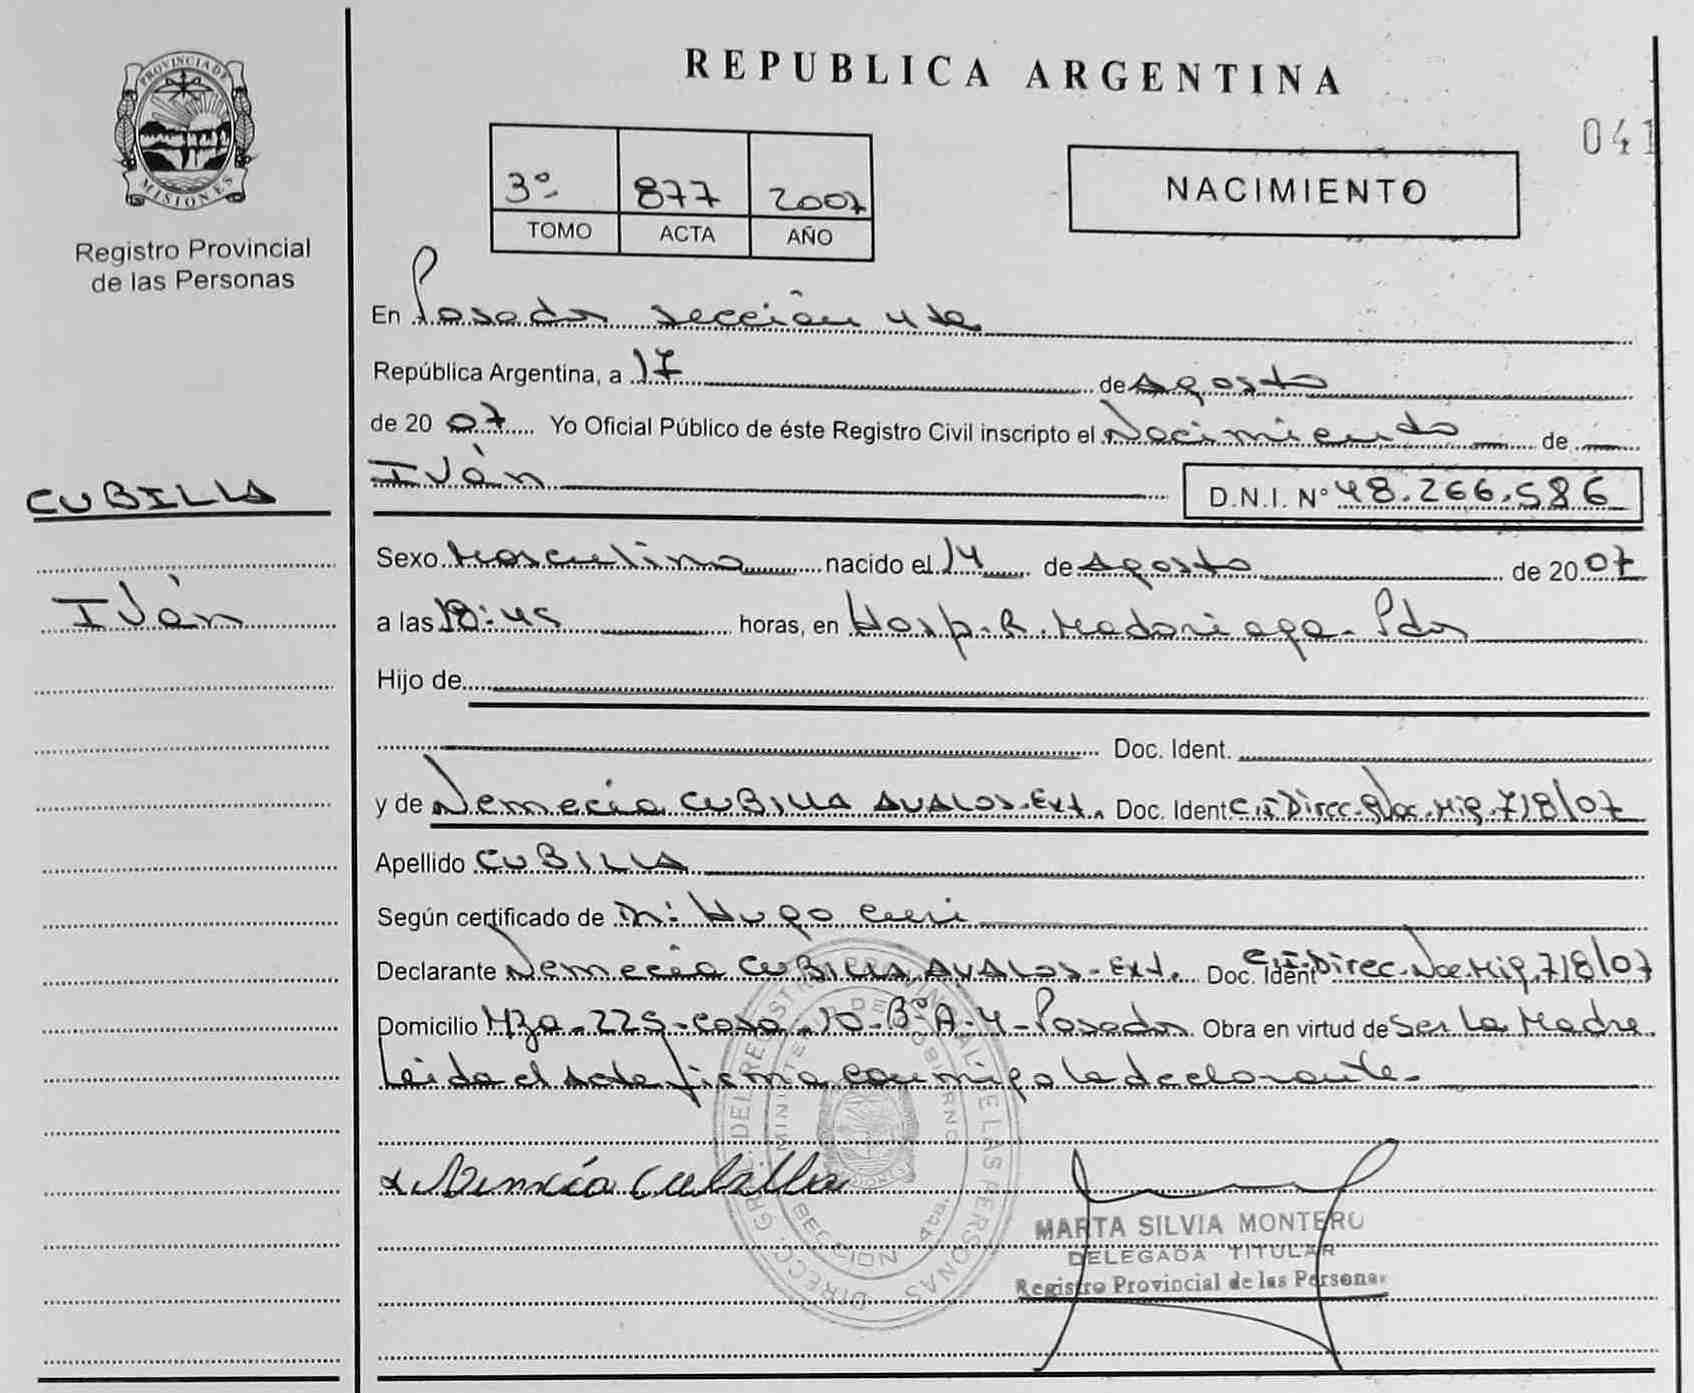 PROVINCIA DE
MISIONES
Registro Provincial
de las Personas
CUBILLA
Iván
REPUBLICA ARGENTINA
041
3º 877 2007
TOMO ACTA AÑO
NACIMIENTO
En Posadas sección 4ta
República Argentina, a 17 de Agosto
de 2007 Yo Oficial Público de éste Registro Civil inscripto el Nacimiento de
Iván D.N.I. Nº 48.266.586
Sexo Masculino nacido el 14 de Agosto de 2007
a las 18:45 horas, en Hosp. R. Madariaga - Pdas
Hijo de
Doc. Ident.
y de Nemecia CUBILLA AVALOS - Ext. Doc. Ident Direc. Mig. 7/8/07
Apellido CUBILLA
Según certificado de Dr: Hugo
Declarante Nemecia CUBILLA AVALOS - Ext. Doc. Ident Direc. Mig. 7/8/07
Domicilio Mza - 225 - casa - 10 - Bº A-4 - Posadas Obra en virtud de Ser La Madre
Leida el acta firma conmigo la declarante -
x Nemecia Cubilla
DIRECC. GRAL. DEL REGISTRO PROVINCIAL DE LAS PERSONAS
MINISTERIO DE GOBIERNO
SECCION 4ta.
MARTA SILVIA MONTERO
DELEGADA TITULAR
Registro Provincial de las Personas